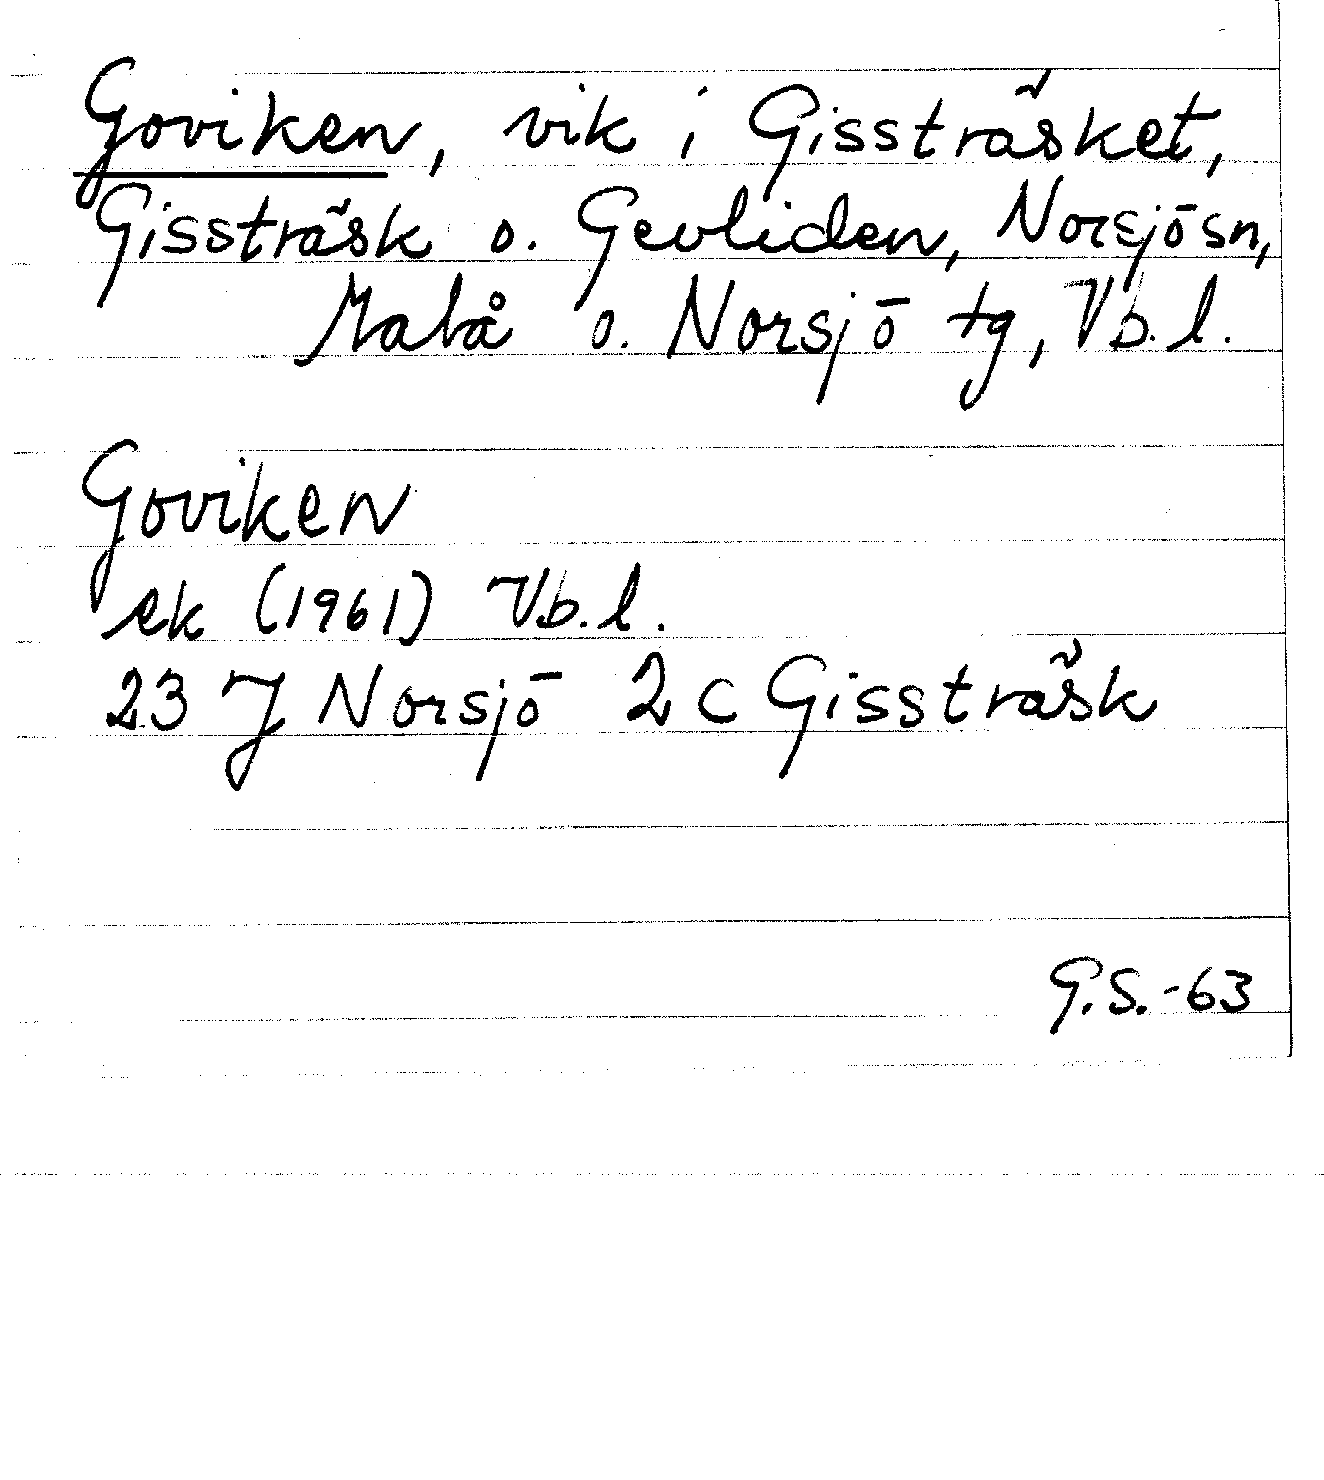 Goviken, vik i Gissträsket,
Gissträsk o. Gevliden, Norsjö sn,
Malå o. Norsjö tg, Vb. l.
Goviken
ek (1961) Vb. l.
23 J Norsjö 2 c Gissträsk
G.S.-63